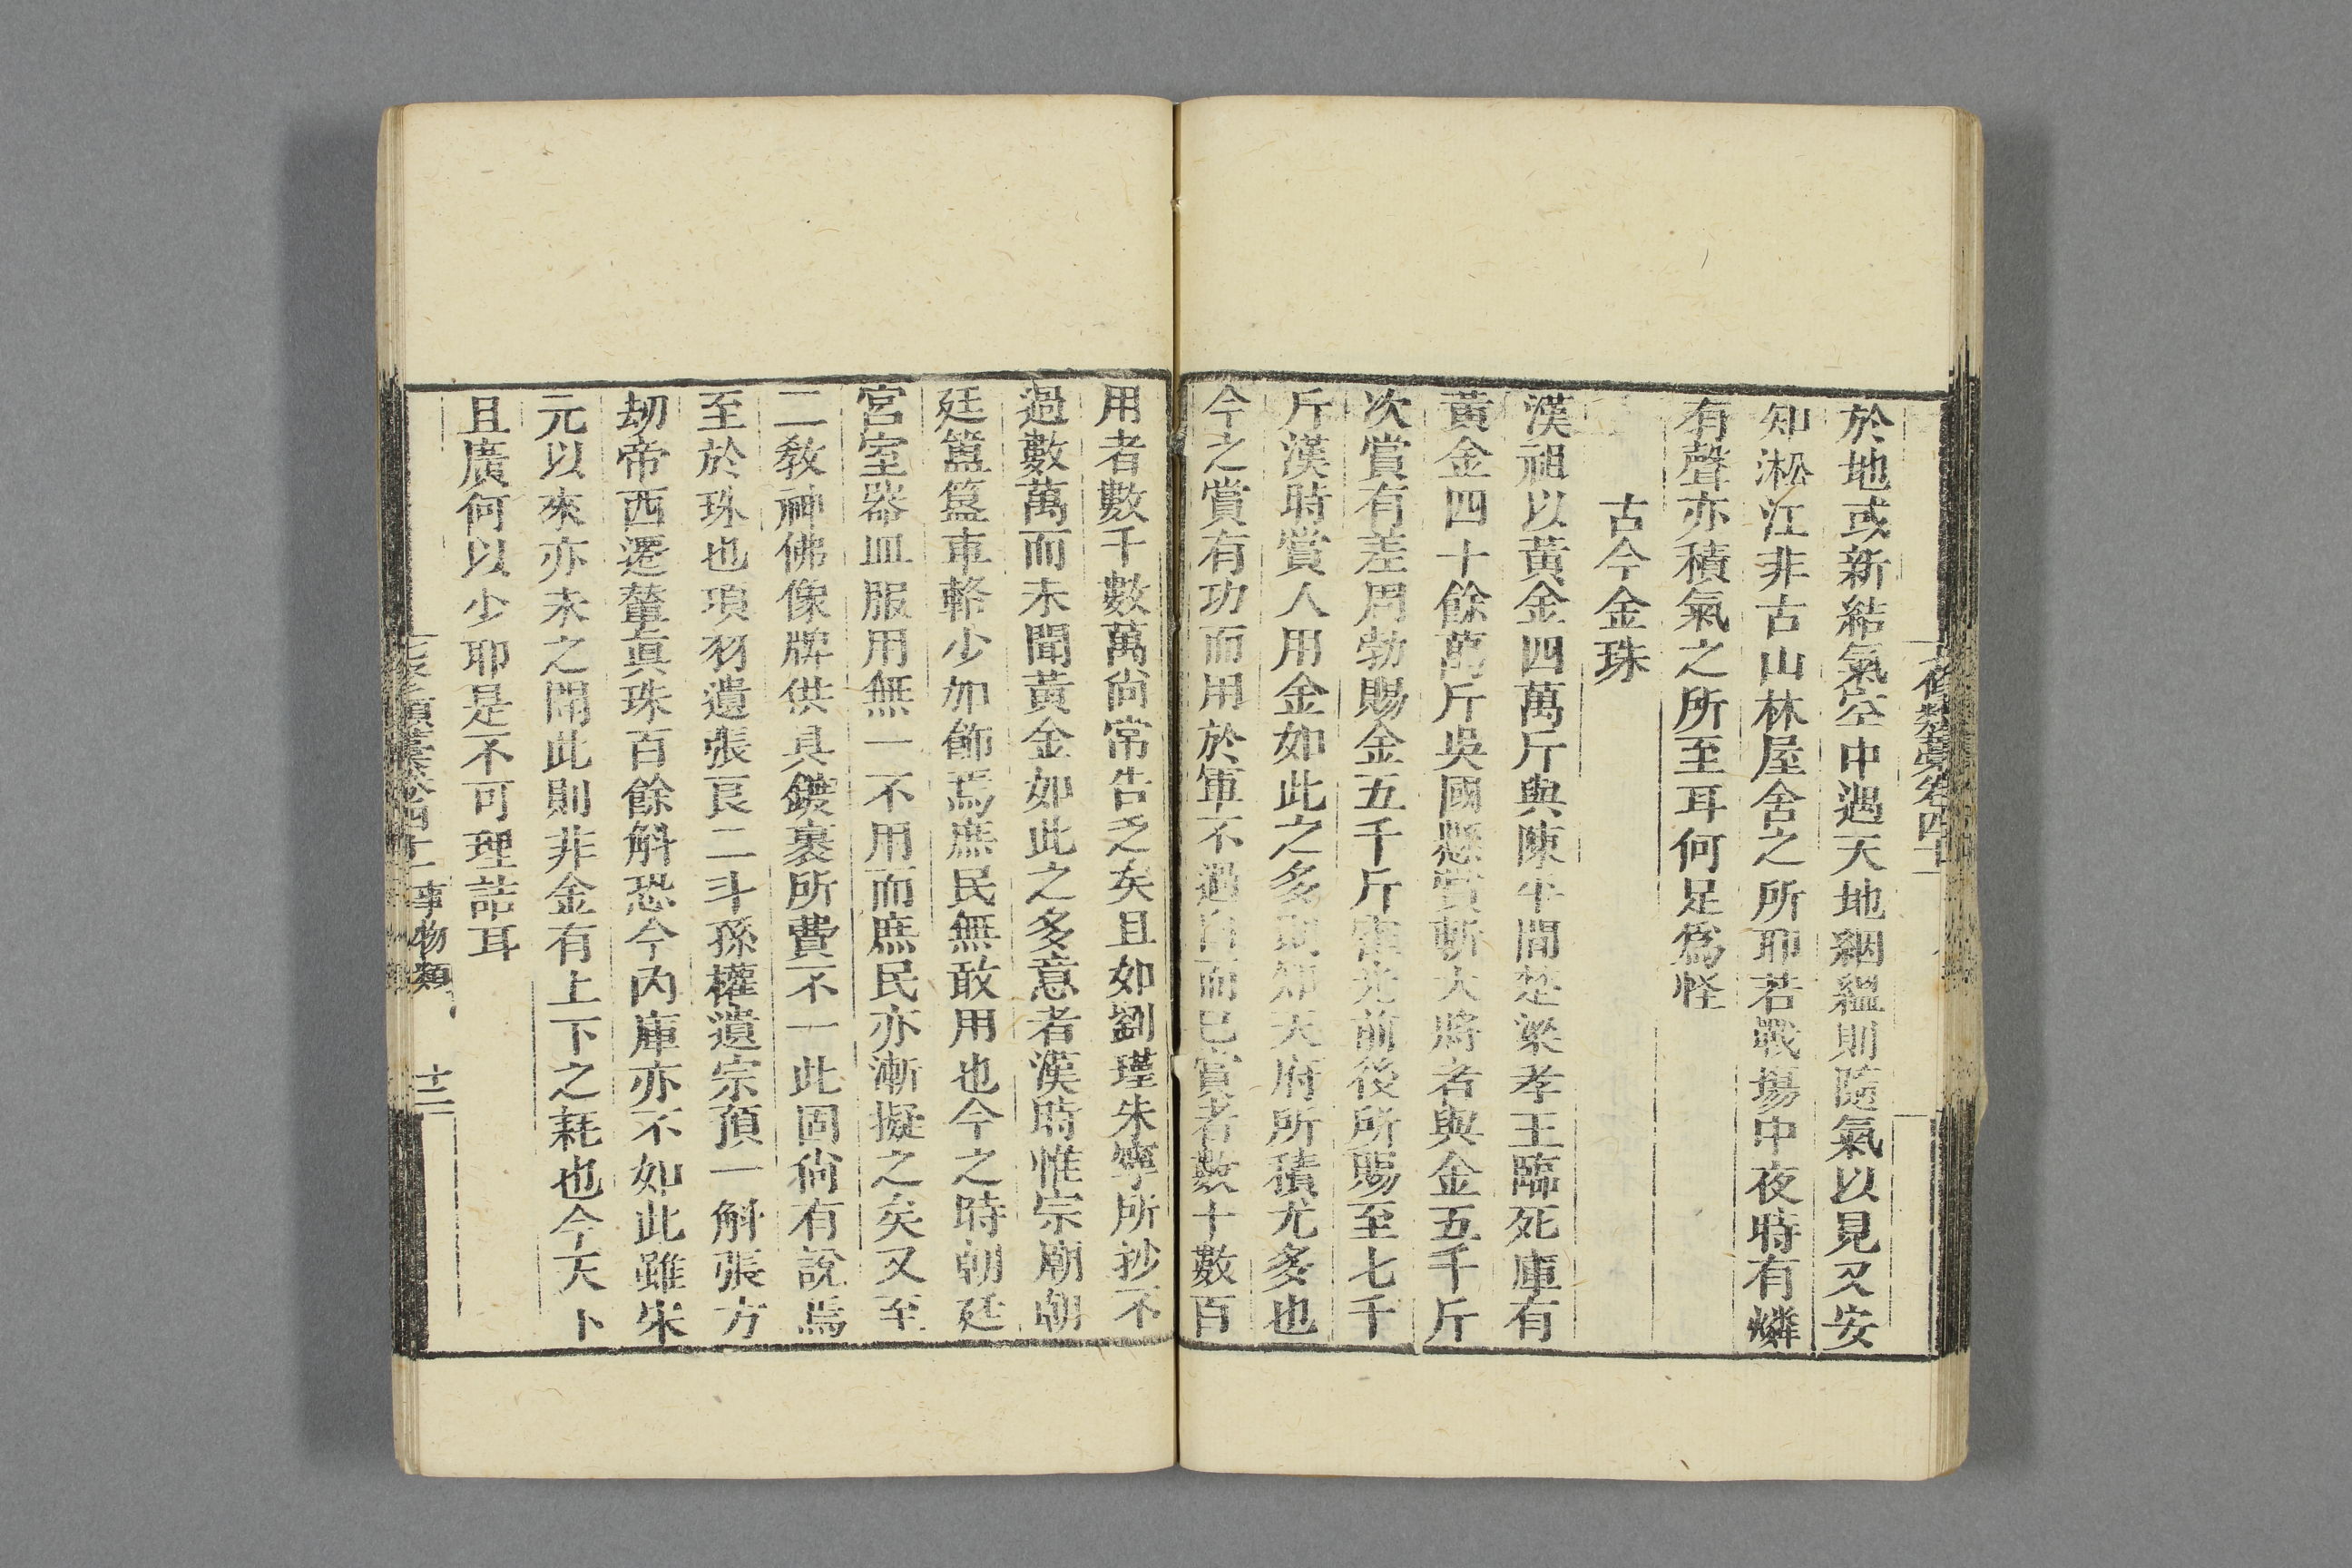 於地或新結氣空中遇天地絪緼則隨氣以見又安
知淞江非古山林屋舍之所耶若戰場中夜時有燐
有聲亦積氣之所至耳何足爲怪
古今金珠
漢祖以黃金四萬斤與陳平間楚梁孝王臨死庫有
黃金四十餘萬斤吳國懸賞斬大將者與金五千斤
次賞有差周勃賜金五千斤霍光前後所賜至七千
斤漢時賞人用金如此之多則知天府所積尤多也
今之賞有功而用於軍不過白而已賞者數十數百
用者數千數萬尙常告乏矣且如劉瑾朱寧所抄不
過數萬而未聞黃金如此之多意者漢時惟宗廟朝
廷簠簋車輅少加飾焉庶民無敢用也今之時朝廷
宮室器皿服用無一不用而庶民亦漸擬之矣又至
二敎神佛像牌供具鍍裹所費不一此固尙有說焉
至於珠也項羽遺張良二斗孫權遺宗預一斛張方
刼帝西遷輦眞珠百餘斛恐今內庫亦不如此雖宋
元以來亦未之聞此則非金有上下之耗也今天下
且廣何以少耶是不可理詰耳
七修類藁卷四十一 事物類 十二